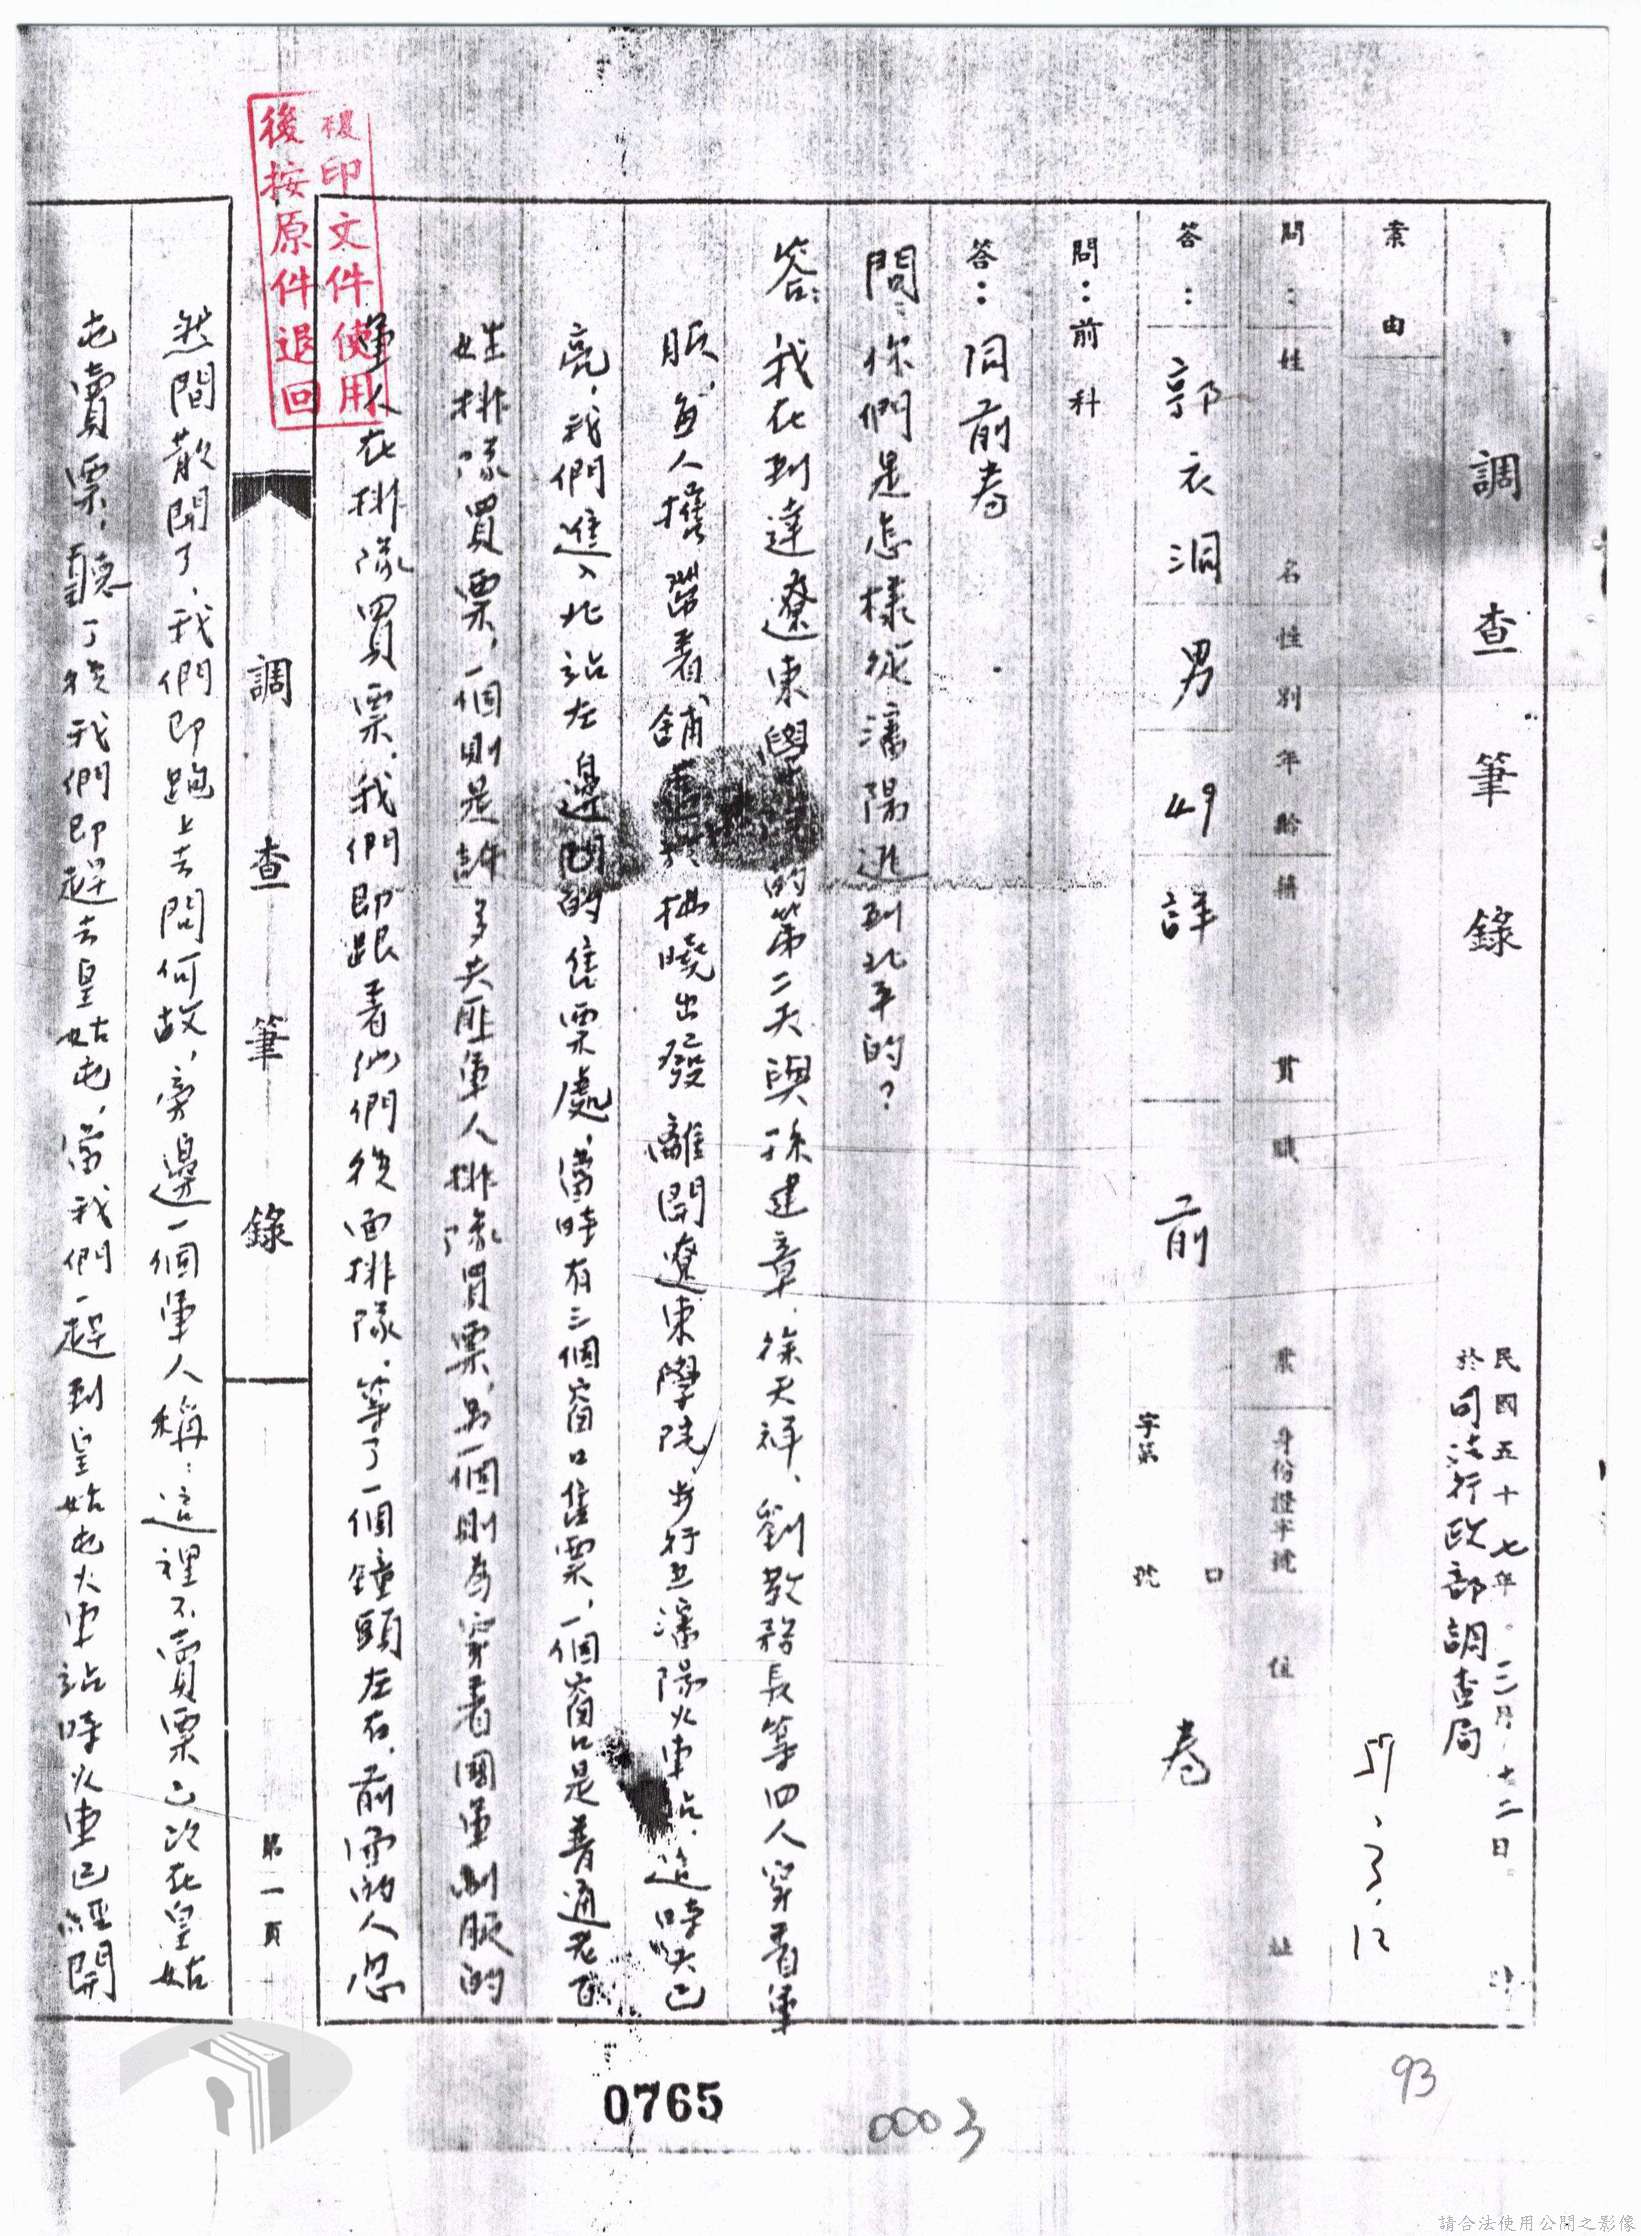 調查筆錄
民國五十七年。三月十二日。
於司法行政部調查局
57.3.12
案由
問：姓名性別年齡籍貫職業身份證字號住址
答：郭衣洞 男 49 詳 前 卷
字第 號
口
問：前科
答：同前卷
問：你們是怎樣從瀋陽逃到北平的？
答：我在到達遼東學 的第二天與孫建章、徐天祥、劉教務長等四人穿着軍
服，每人攜帶着舖 拂曉出發離開遼東學院，步行至瀋陽火車站，這時天已
亮，我們進入北站左邊門的售票處，當時有三個窗口售票，一個窗口是普通老百
姓排隊買票，一個則是許多共匪軍人排隊買票，另一個則為穿着國軍制服的
軍人在排隊買票，我們即跟着他們後面排隊，等了一個鐘頭左右，前面的人忽
調查筆錄
第一頁
然間散開了，我們即跑上去問何故，旁邊一個軍人稱：這裡不賣票已改在皇姑
屯賣票，聽了後我們即趕去皇姑屯，當我們一趕到皇姑屯火車站時火車已經開
複印文件使用
後按原件退回
0765
0003
93
請合法使用公開之影像